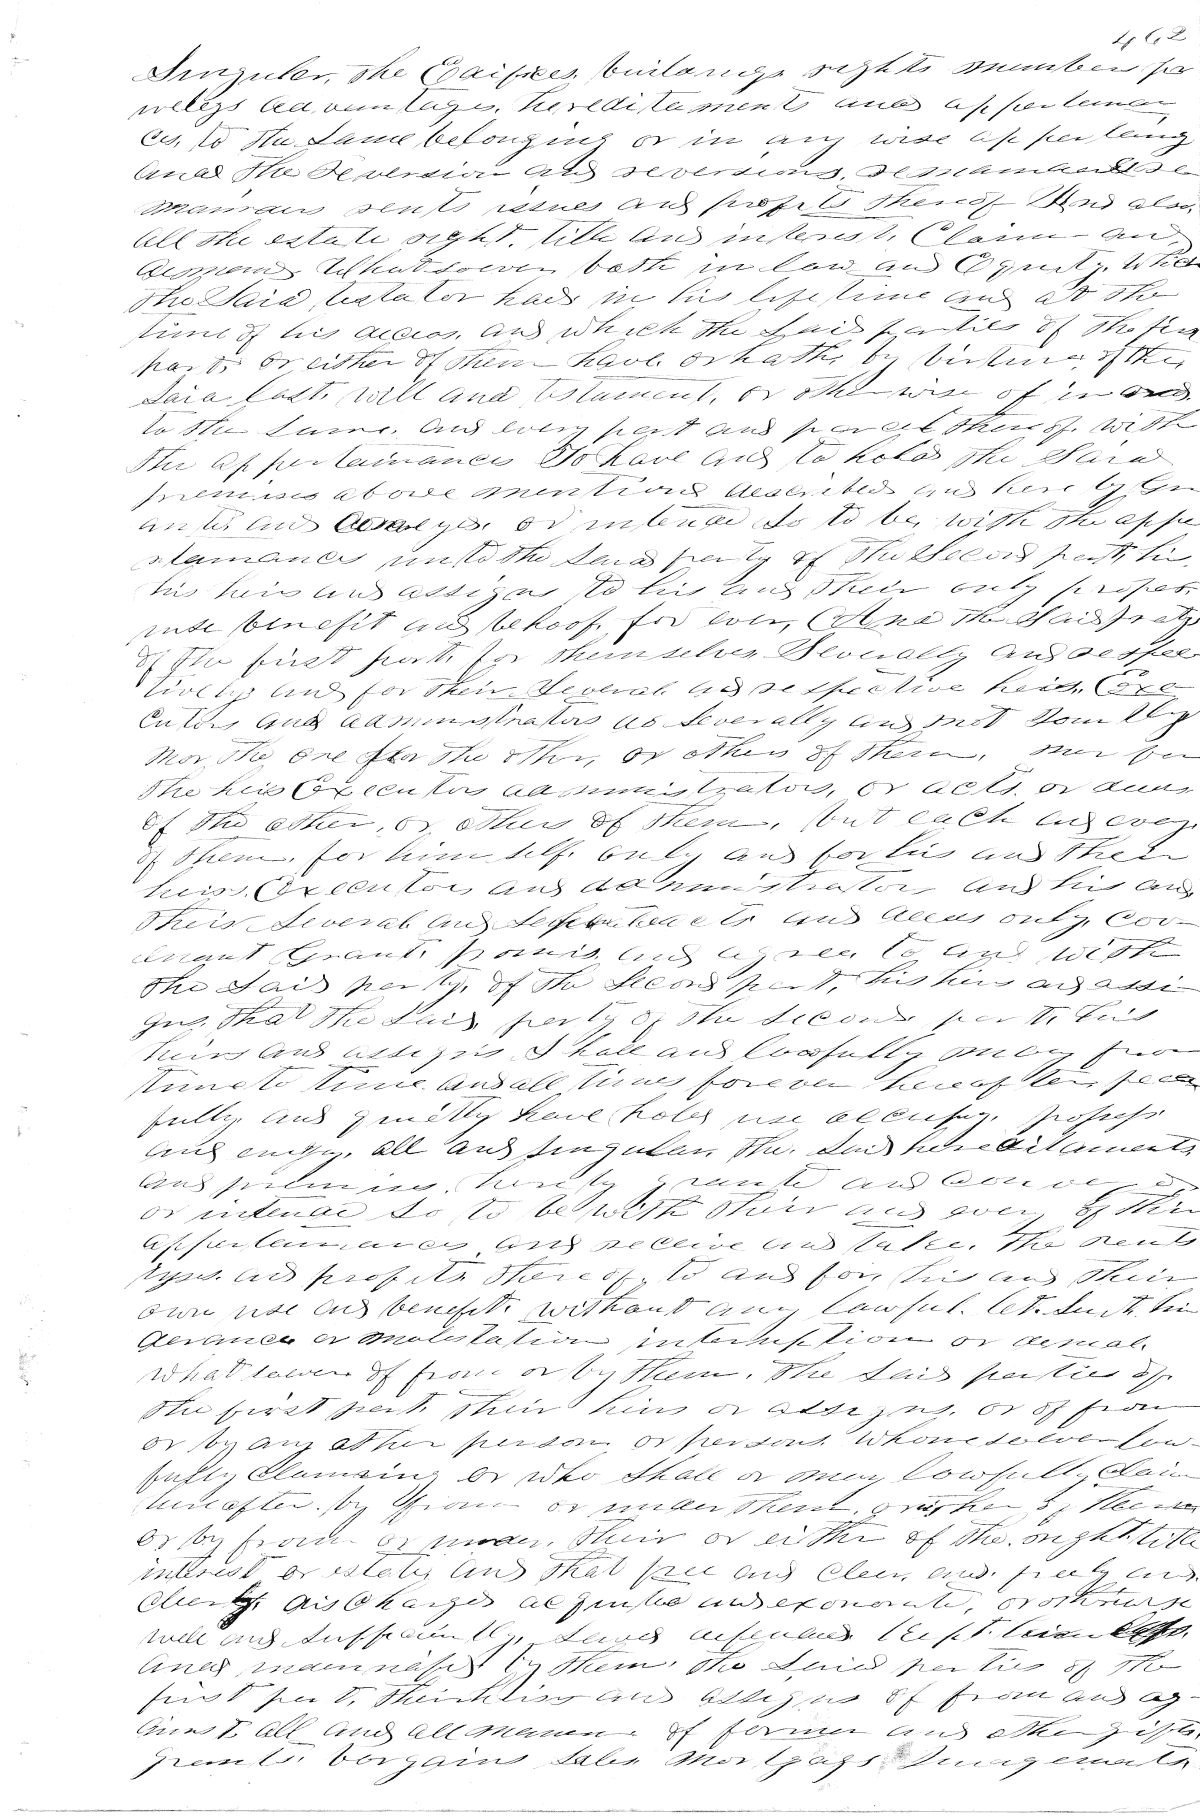 462
Singuler, the Edifices buildings rights members pr
weliges advantages, hereditaments and appertenan
ces, to the Same belonging or in any wise appertaing
and The Reversion and reversions, remainder re
mainders rents issues and profits thereof And also,
all the estate right, title and interest, Claim and
demand Whatsoever both in law and Equity, Which
The Said testator had in his life time and at the
time of his deceas, and which the Said parties of The first
part, or either of them have or hath, by virtue, of the
Said last, will and testament, or otherwise of in and
to the Same, and every part and parcel thereof, with
The appertainances To have and to hold the Said
premises above mentiond described and here by Gr
anted and Conveyed or intend So to be, with the appe
rtainances unto the Said party of The Second part, his
his heirs and assigns to his and Their only proper,
use benefit and behoof, for ever, And The Said
of The first part, for themselves Severally and respec
tively and for Their Several and respective heirs, Exe
cutors and administrators as Severally and not Jointly
nor, the one for the other, or others of them, nor for
The heirs Executors administrators, or acts, or deeds
of The other, or others of them, but each and every,
of them, for himself, only and for his and Their
heirs, Executors and administrators and his and
Their Several and acts and deeds only, Cov-
enant Grant, promis and agree, to and with
The Said party, of the Second part, his heirs and assi
gns, That The Said party of The Second part, his
heirs and assigns Shall and lawfully may from
time to time and all times forever hereafter peac
fully and quietly have hold use occupy, possess
and enjoy, all and Singular, the Said hereditaments
and premises, hereby granted and Conveyed
or intend So to be with Their and every of Their
appertainances and receive and take, the rents
and profits Thereof, to and for, his and Their
own use and benefit, without any lawful let, Suit, hin
derance or molestation interruption or denial,
whatsoever of from or by them, The Said parties of
the first part, Their heirs or assigns, or of from
or by any other person or persons Whomesoever law-
fully Claiming or who Shall or may lawfully Claim
hereafter by from or under them or either of them
or by from or under, Their or either of The right title
interest or estate, and That free and Clear, and freely and
Clearly discharged and exonorate, or otherwise
well and Sufficiently, Saved defended Kept
and by them, the Said parties of The
first part, Their heirs and assigns of from and ag-
ainst, all and all manner of former and other gifts,
grants, bargains Sales Mortgags